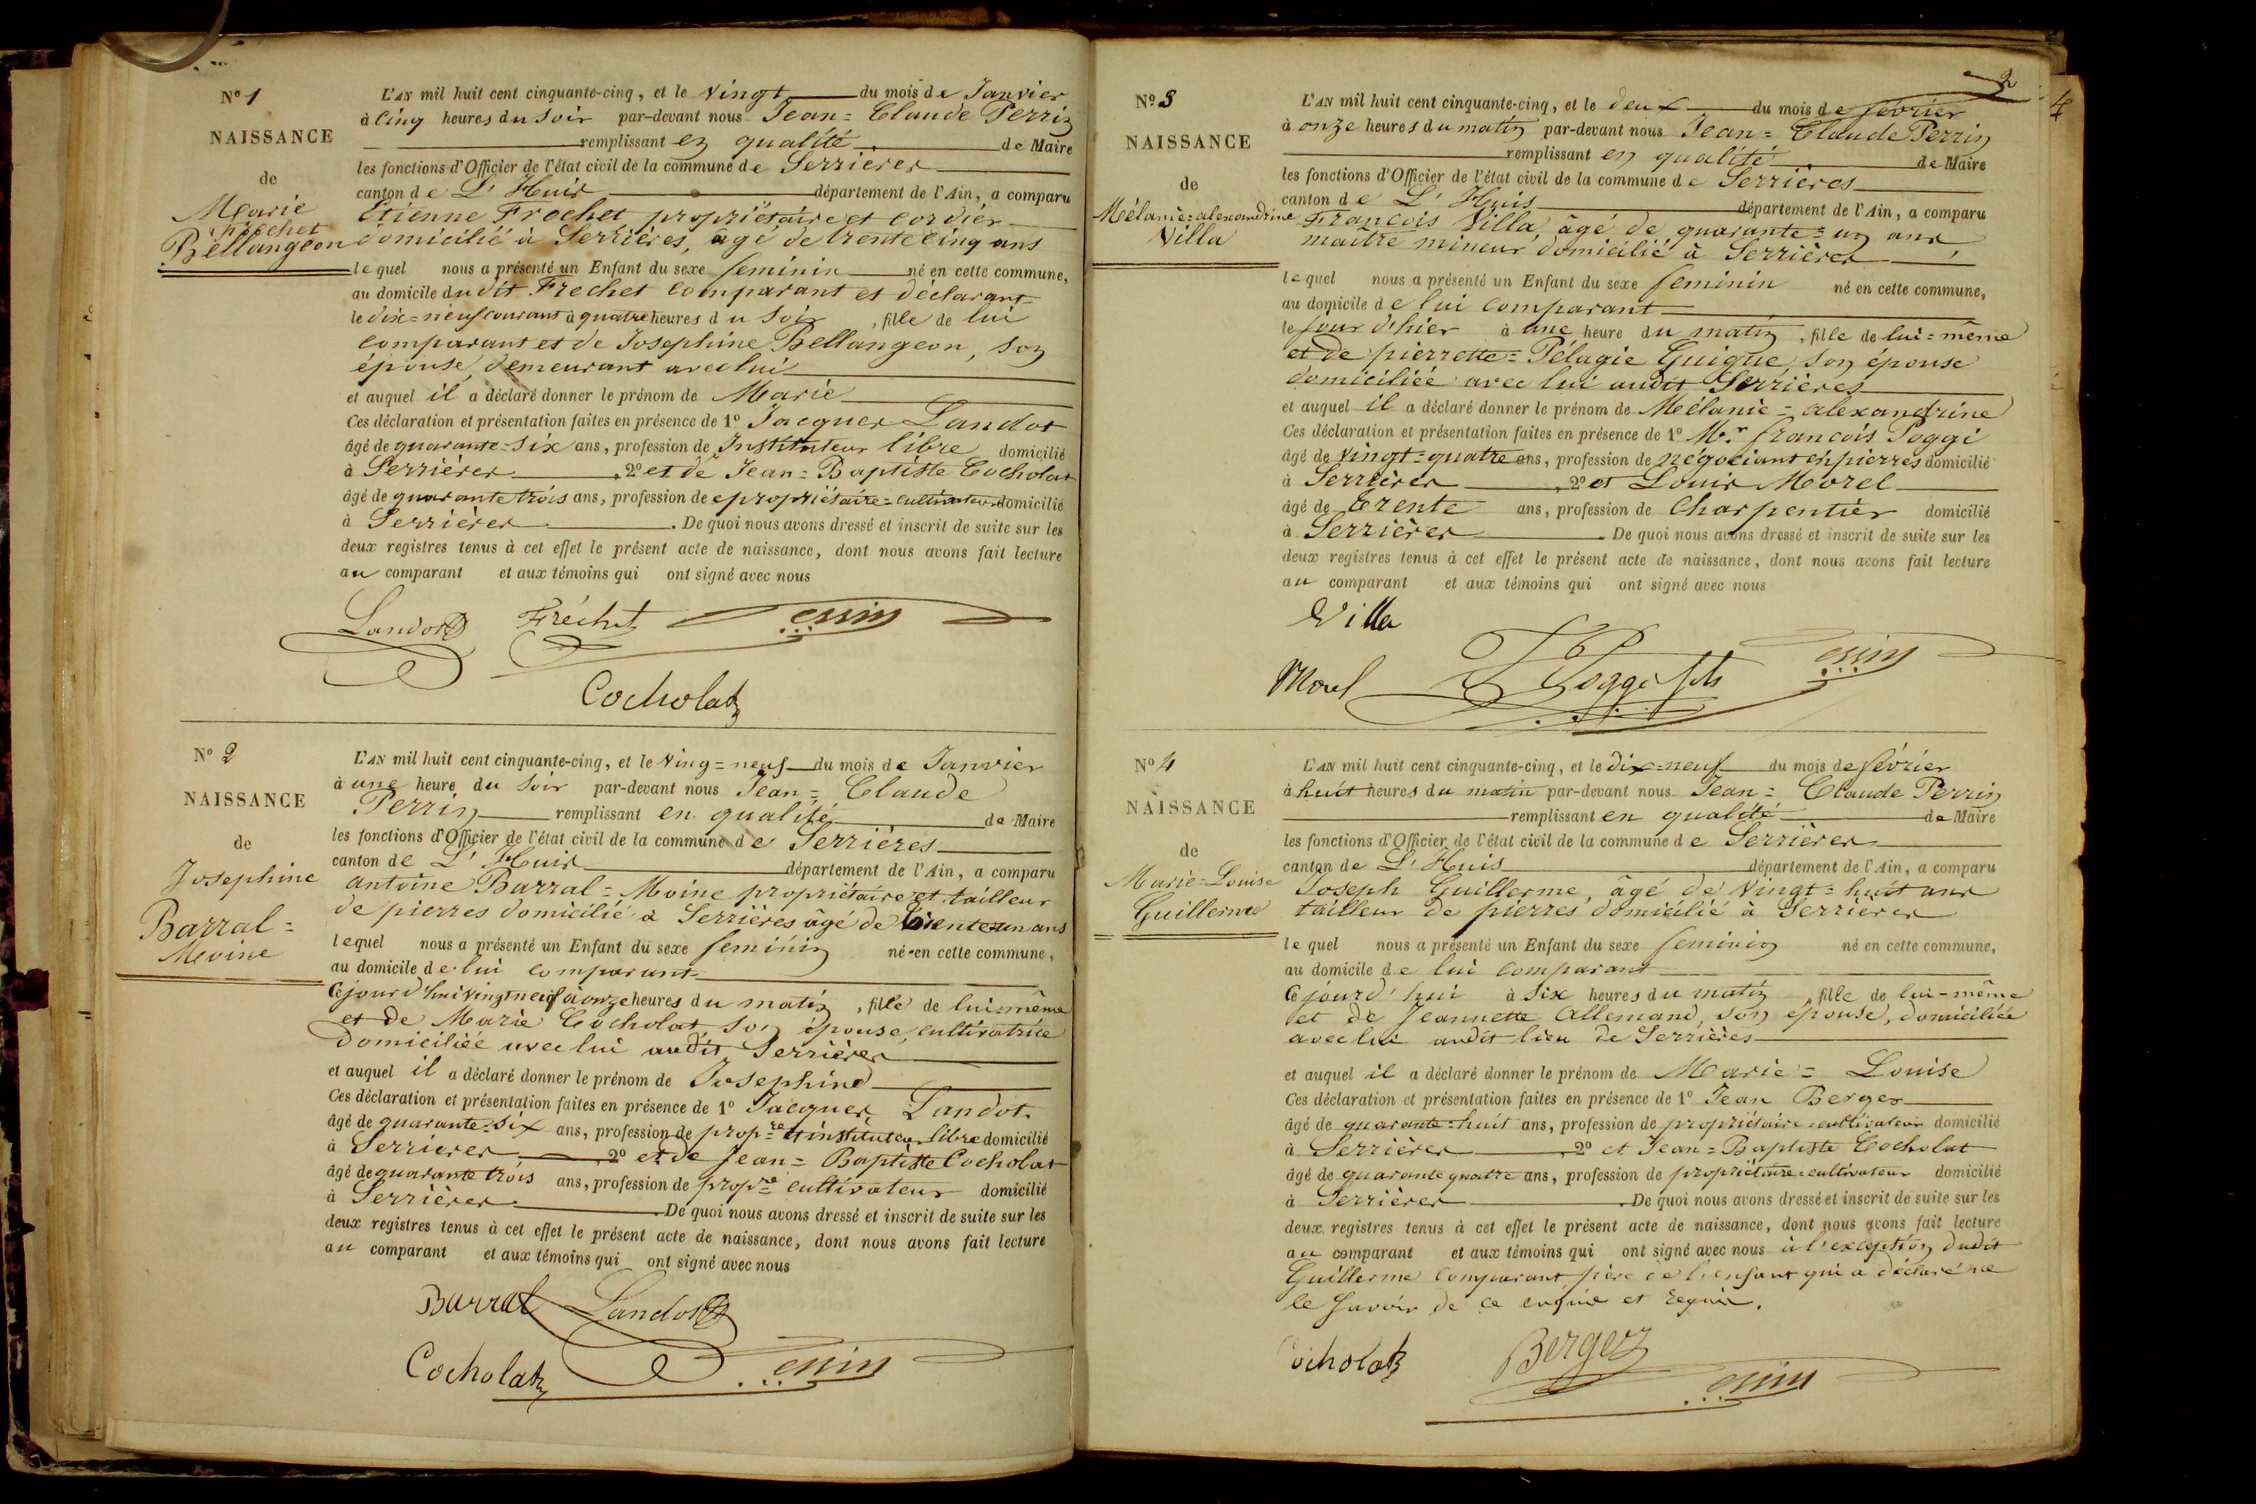 Nº 1
NAISSANCE
de
Marie
Frechet
Bellangeon
L'AN mil huit cent cinquante-cinq, et le vingt du mois de Janvier
à cinq heures du soir par-devant nous Jean=Claude Perrin
remplissant en qualité de Maire
les fonctions d'Officier de l'état civil de la commune de Serrières
canton de L'Huis département de l'Ain, a comparu
Etienne Frechet propriétaire et cordier
domicilié à Serrières, agé de trente cinq ans
lequel nous a présenté un Enfant du sexe feminin né en cette commune,
au domicile dudit Frechet comparant et déclarant
le dix=neuf courant à quatre heures du soir, fille de lui
comparant et de Josephine Bellangeon, son
épouse, demeurant avec lui
et auquel il a déclaré donner le prénom de Marie
Ces déclaration et présentation faites en présence de 1º Jacques Landot
âgé de quarante-six ans, profession de Instituteur libre domicilié
à Serrières, 2º et de Jean=Baptiste Cocholat
âgé de quarante trois ans, profession de propriétaire=cultivateur domicilié
à Serrières. De quoi nous avons dressé et inscrit de suite sur les
deux registres tenus à cet effet le présent acte de naissance, dont nous avons fait lecture
au comparant et aux témoins qui ont signé avec nous
Landot Fréchet Perrin
Cocholat
Nº 2
NAISSANCE
de
Josephine
Barral=
Moine
L'AN mil huit cent cinquante-cinq, et le ving=neuf du mois de Janvier
à une heure du soir par-devant nous Jean=Claude
Perrin remplissant en qualité de Maire
les fonctions d'Officier de l'état civil de la commune de Serrières
canton de L'Huis département de l'Ain, a comparu
antoine Barral=Moine propriétaire et tailleur
de pierres domicilié à Serrières âgé de trente un ans
lequel nous a présenté un Enfant du sexe feminin né en cette commune,
au domicile de lui comparant
Ce jourd'hui vingt neuf à onze heures du matin, fille de lui même
et de Marie Cocholat son épouse, cultivatrice
domiciliée avec lui audit Serrières
et auquel il a déclaré donner le prénom de Josephine
Ces déclaration et présentation faites en présence de 1º Jacques Landot
âgé de quarante-six ans, profession de propre et instituteur libre domicilié
à Serrieres, 2º et de Jean=Baptiste Cocholat
âgé de quarante trois ans, profession de propre cultivateur domicilié
à Serrières. De quoi nous avons dressé et inscrit de suite sur les
deux registres tenus à cet effet le présent acte de naissance, dont nous avons fait lecture
au comparant et aux témoins qui ont signé avec nous
Barral Landot
Cocholat Perrin
2
4
Nº 3
NAISSANCE
de
Mélanie=alexandrine
Villa
L'AN mil huit cent cinquante-cinq, et le deux du mois de février
à onze heures du matin par-devant nous Jean=Claude Perrin
remplissant en qualité de Maire
les fonctions d'Officier de l'état civil de la commune de Serrières
canton de L'Huis département de l'Ain, a comparu
François Villa âgé de quarante=un ans
maître mineur domicilié à Serrières
lequel nous a présenté un Enfant du sexe feminin né en cette commune,
au domicile de lui comparant
le jour d'hier à une heure du matin, fille de lui=même
et de pierrette=Pélagie Guigue, son épouse
domiciliée avec lui audit Serrières
et auquel il a déclaré donner le prénom de Mélanie=alexandrine
Ces déclaration et présentation faites en présence de 1º Mr. françois Poggi
âgé de vingt=quatre ans, profession de négociant en pierres domicilié
à Serrières, 2º et Louis Morel
âgé de Trente ans, profession de Charpentier domicilié
à Serrières. De quoi nous avons dressé et inscrit de suite sur les
deux registres tenus à cet effet le présent acte de naissance, dont nous avons fait lecture
au comparant et aux témoins qui ont signé avec nous
Villa
Morel F Poggi fils Perrin
Nº 4
NAISSANCE
de
Marie=Louise
Guillerme
L'AN mil huit cent cinquante-cinq, et le dix=neuf du mois de février
à huit heures du matin par-devant nous Jean=Claude Perrin
remplissant en qualité de Maire
les fonctions d'Officier de l'état civil de la commune de Serrières
canton de L'Huis département de l'Ain, a comparu
Joseph Guillerme âgé de vingt=huit ans
tailleur de pierres domicilié à Serrières
lequel nous a présenté un Enfant du sexe feminin né en cette commune,
au domicile de lui comparant
Ce jourd'hui à six heures du matin, fille de lui-même
et de Jeannette Allemand, son épouse, domiciliée
avec lui audit lieu de Serrières
et auquel il a déclaré donner le prénom de Marie=Louise
Ces déclaration et présentation faites en présence de 1º Jean Berger
âgé de quarante=huit ans, profession de propriétaire cultivateur domicilié
à Serrières, 2º et Jean=Baptiste Cocholat
âgé de quarante quatre ans, profession de propriétaire=cultivateur domicilié
à Serrières. De quoi nous avons dressé et inscrit de suite sur les
deux registres tenus à cet effet le présent acte de naissance, dont nous avons fait lecture
au comparant et aux témoins qui ont signé avec nous à l'exception dudit
Guillerme comparant père de l'enfant qui a déclaré ne
le savoir de ce enquis et requis.
Cocholat Berger Perrin